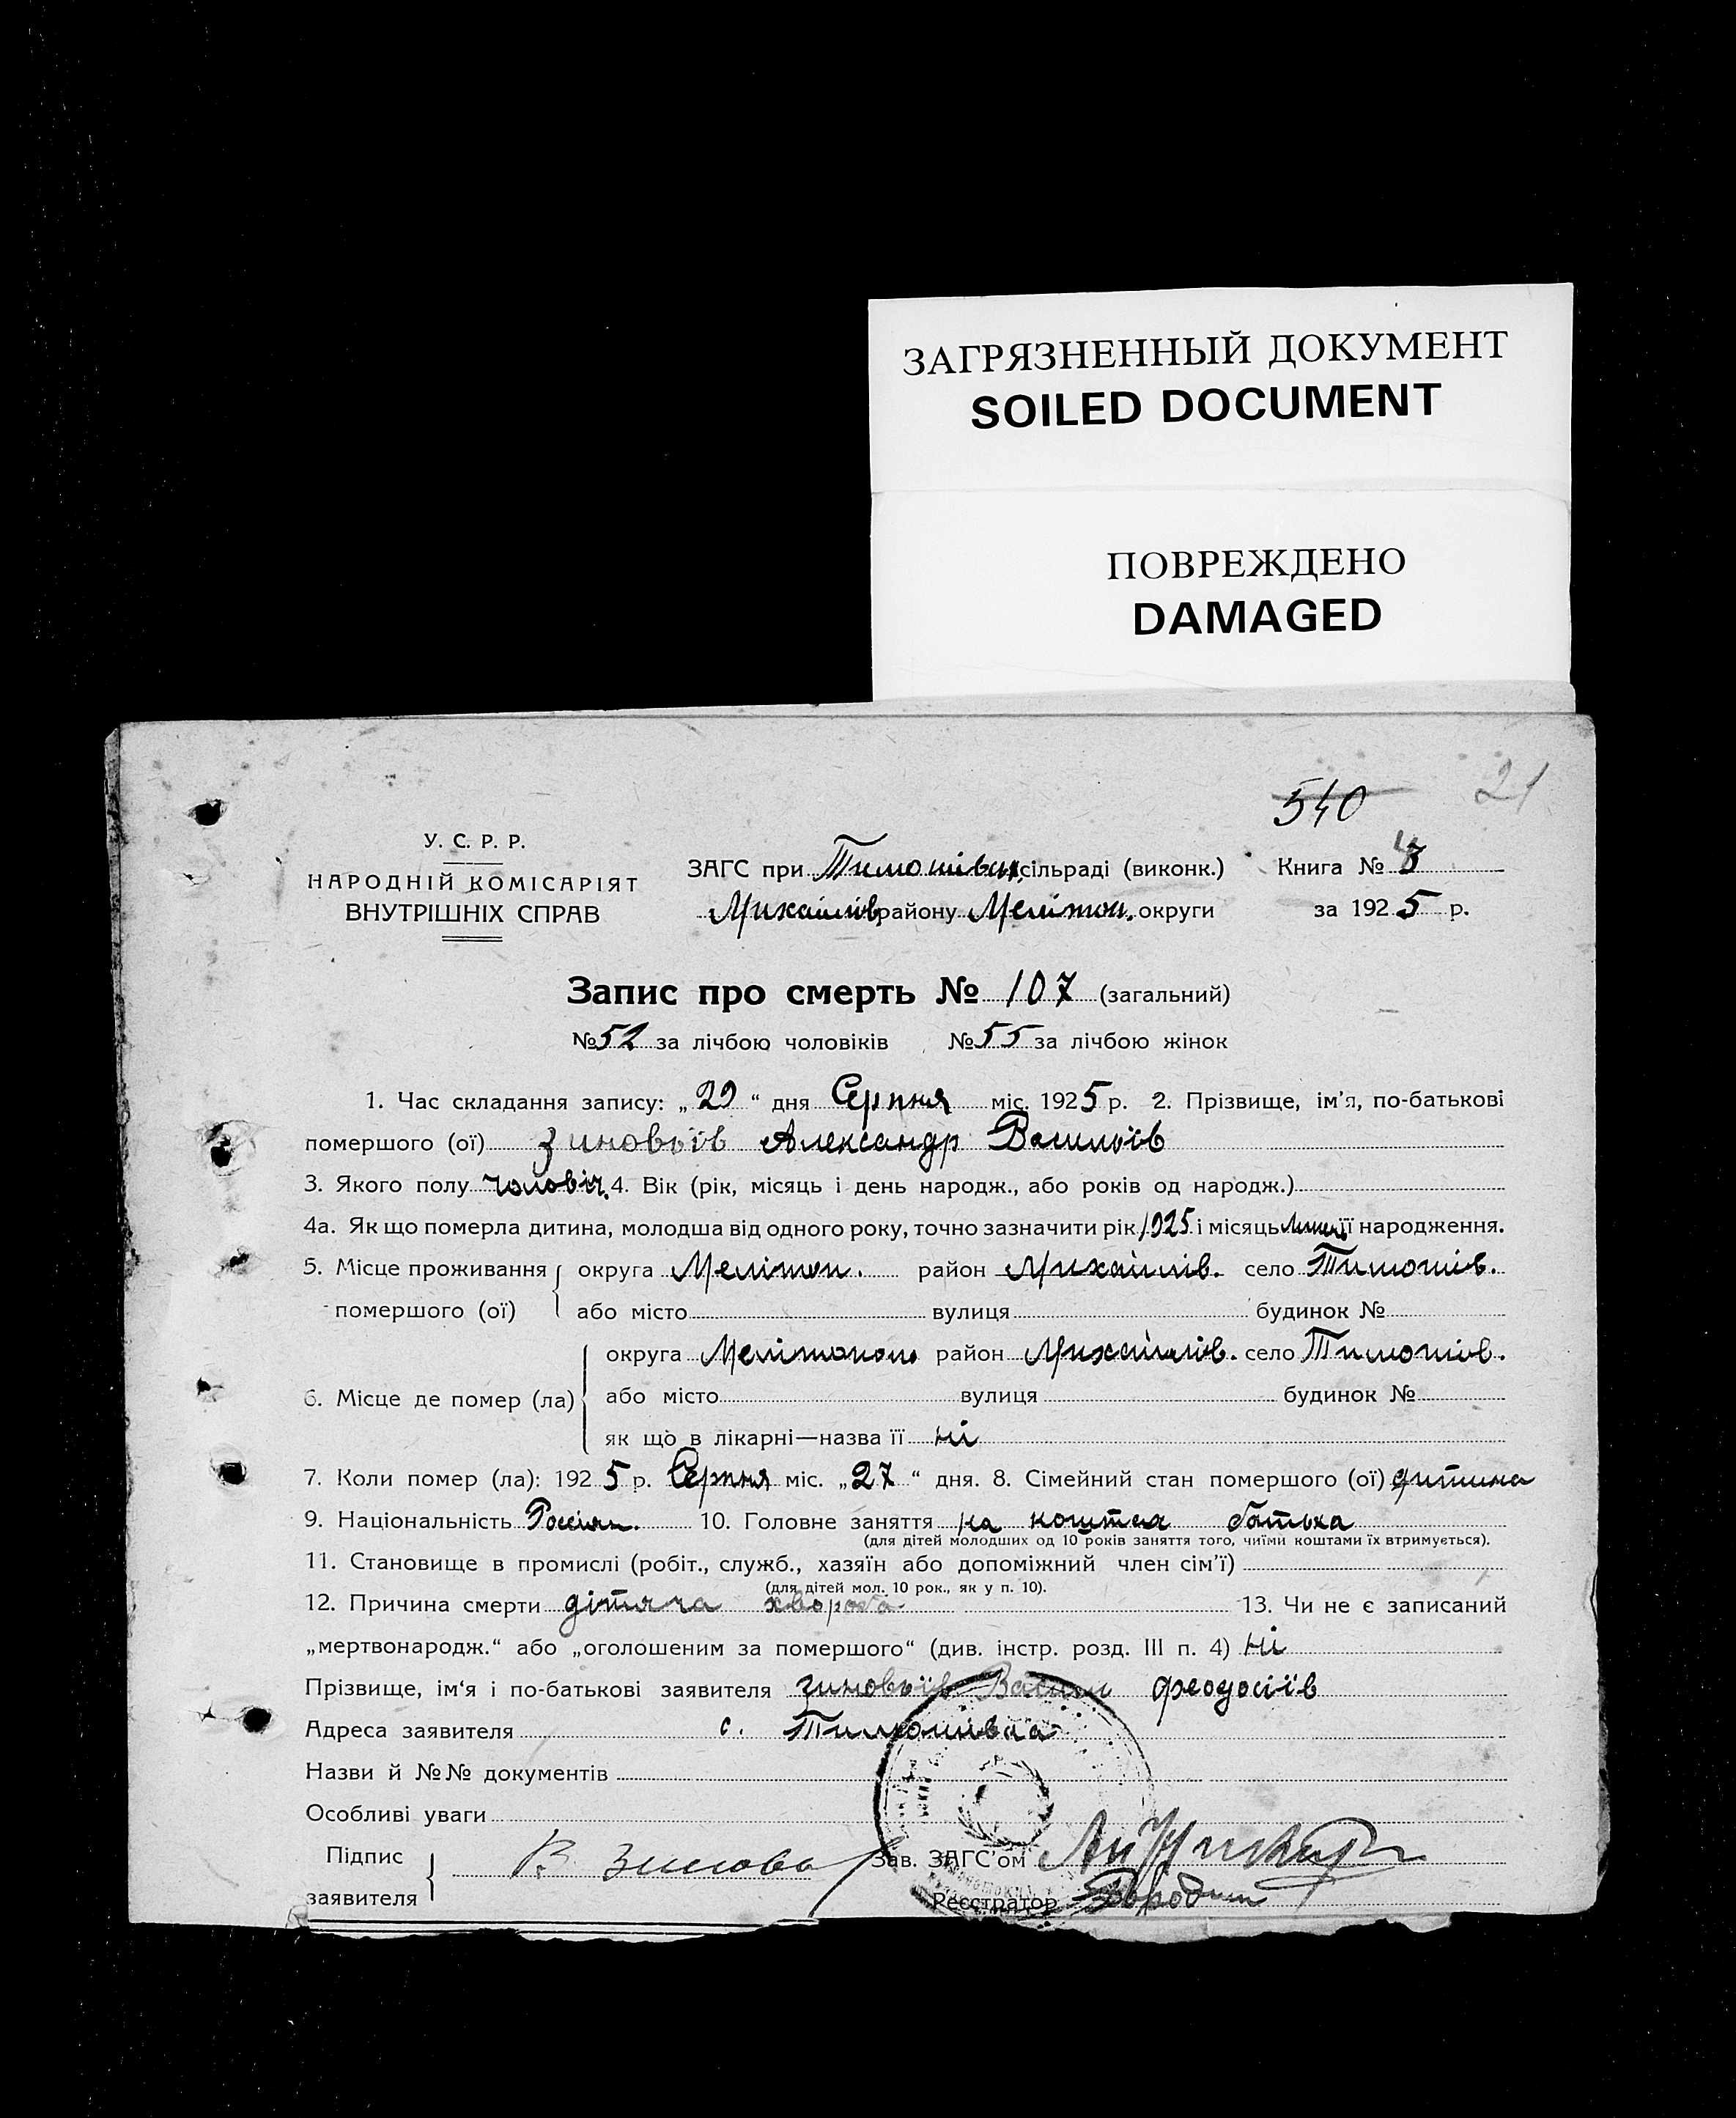 ЗАГРЯЗНЕННЫЙ ДОКУМЕНТ
SOILED DOCUMENT
ПОВРЕЖДЕНО
DAMAGED
540 21
У. С. Р. Р.
НАРОДНІЙ КОМІСАРІЯТ
ВНУТРІШНІХ СПРАВ
ЗАГС при Тимошівськ. сільраді (виконк.) Книга №
Михайлів. району Мелітоп. округи за 1925 р.
Запис про смерть № 107 (загальний)
№ 52 за лічбою чоловіків № 55 за лічбою жінок
1. Час складання запису: „29“ дня Серпня міс. 1925 р. 2. Прізвище, ім’я, по-батькові
помершого (ої) Зиновьїв Александр Васильїв
3. Якого полу чоловіч. 4. Вік (рік, місяць і день народж., або років од народж.)
4а. Як що померла дитина, молодша від одного року, точно зазначити рік 1925 і місяць її народження.
5. Місце проживання округа Мелітоп. район Михайлів. село Тимошів.
помершого (ої) або місто вулиця будинок №
округа Мелітополь район Михайлів. село Тимошів.
6. Місце де помер (ла) або місто вулиця будинок №
як що в лікарні—назва її ні
7. Коли помер (ла): 1925 р. Серпня міс. „27“ дня. 8. Сімейний стан помершого (ої) дитина
9. Національність Россіян. 10. Головне заняття на коштах батька
(для дітей молодших од 10 років заняття того, чиїми коштами їх втримується).
11. Становище в промислі (робіт., служб., хазяїн або допоміжний член сім’ї)
(для дітей мол. 10 рок., як у п. 10).
12. Причина смерти дітяча хвороба 13. Чи не є записаний
„мертвонародж.“ або „оголошеним за помершого“ (див. інстр. розд. III п. 4) ні
Прізвище, ім‘я і по-батькові заявителя Зиновьїв Васили Феодосіїв
Адреса заявителя с. Тимошівка
Назви й №№ документів
Особливі уваги
Підпис заявителя В. Зинова Зав. ЗАГС’ом
Реєстратор